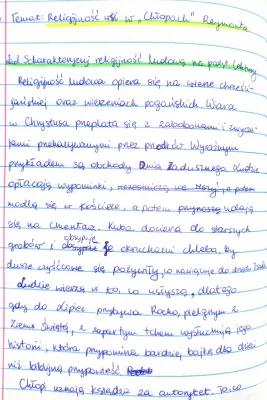 Temat: Religijność w "Chłopach" Reymonta
Scharakteryzuj religijność ludową na podst. lektury
Religijność ludowa opiera się na wierze chrześci-
jańskiej oraz wierzeniach pogańskich. Wiara
w Chrystusa przeplata się z zabobonami i zwycza-
jami przekazywanymi przez przodków. Wyraźnym
przykładem są obchody Dnia Zadusznego. Ludzie
opłacają wypominki,
modlą się w kościele, a potem udają
się na cmentarz. Kuba dociera do starszych
grobów i obsypuje je okruchami chleba, by
dusze czyśćcowe się pożywiły, co nawiązuje do
Ludzie wierzą w to, co usłyszą, dlatego
gdy do Lipiec przybywa Rocho, pielgrzym z
Ziemi Świętej, z zapartym tchem wysłuchują jego
historii, która przypomina bardziej bajkę dla dzieci
niż biblijną przypowieść
Chłopi uznają księdza za autorytet. To co